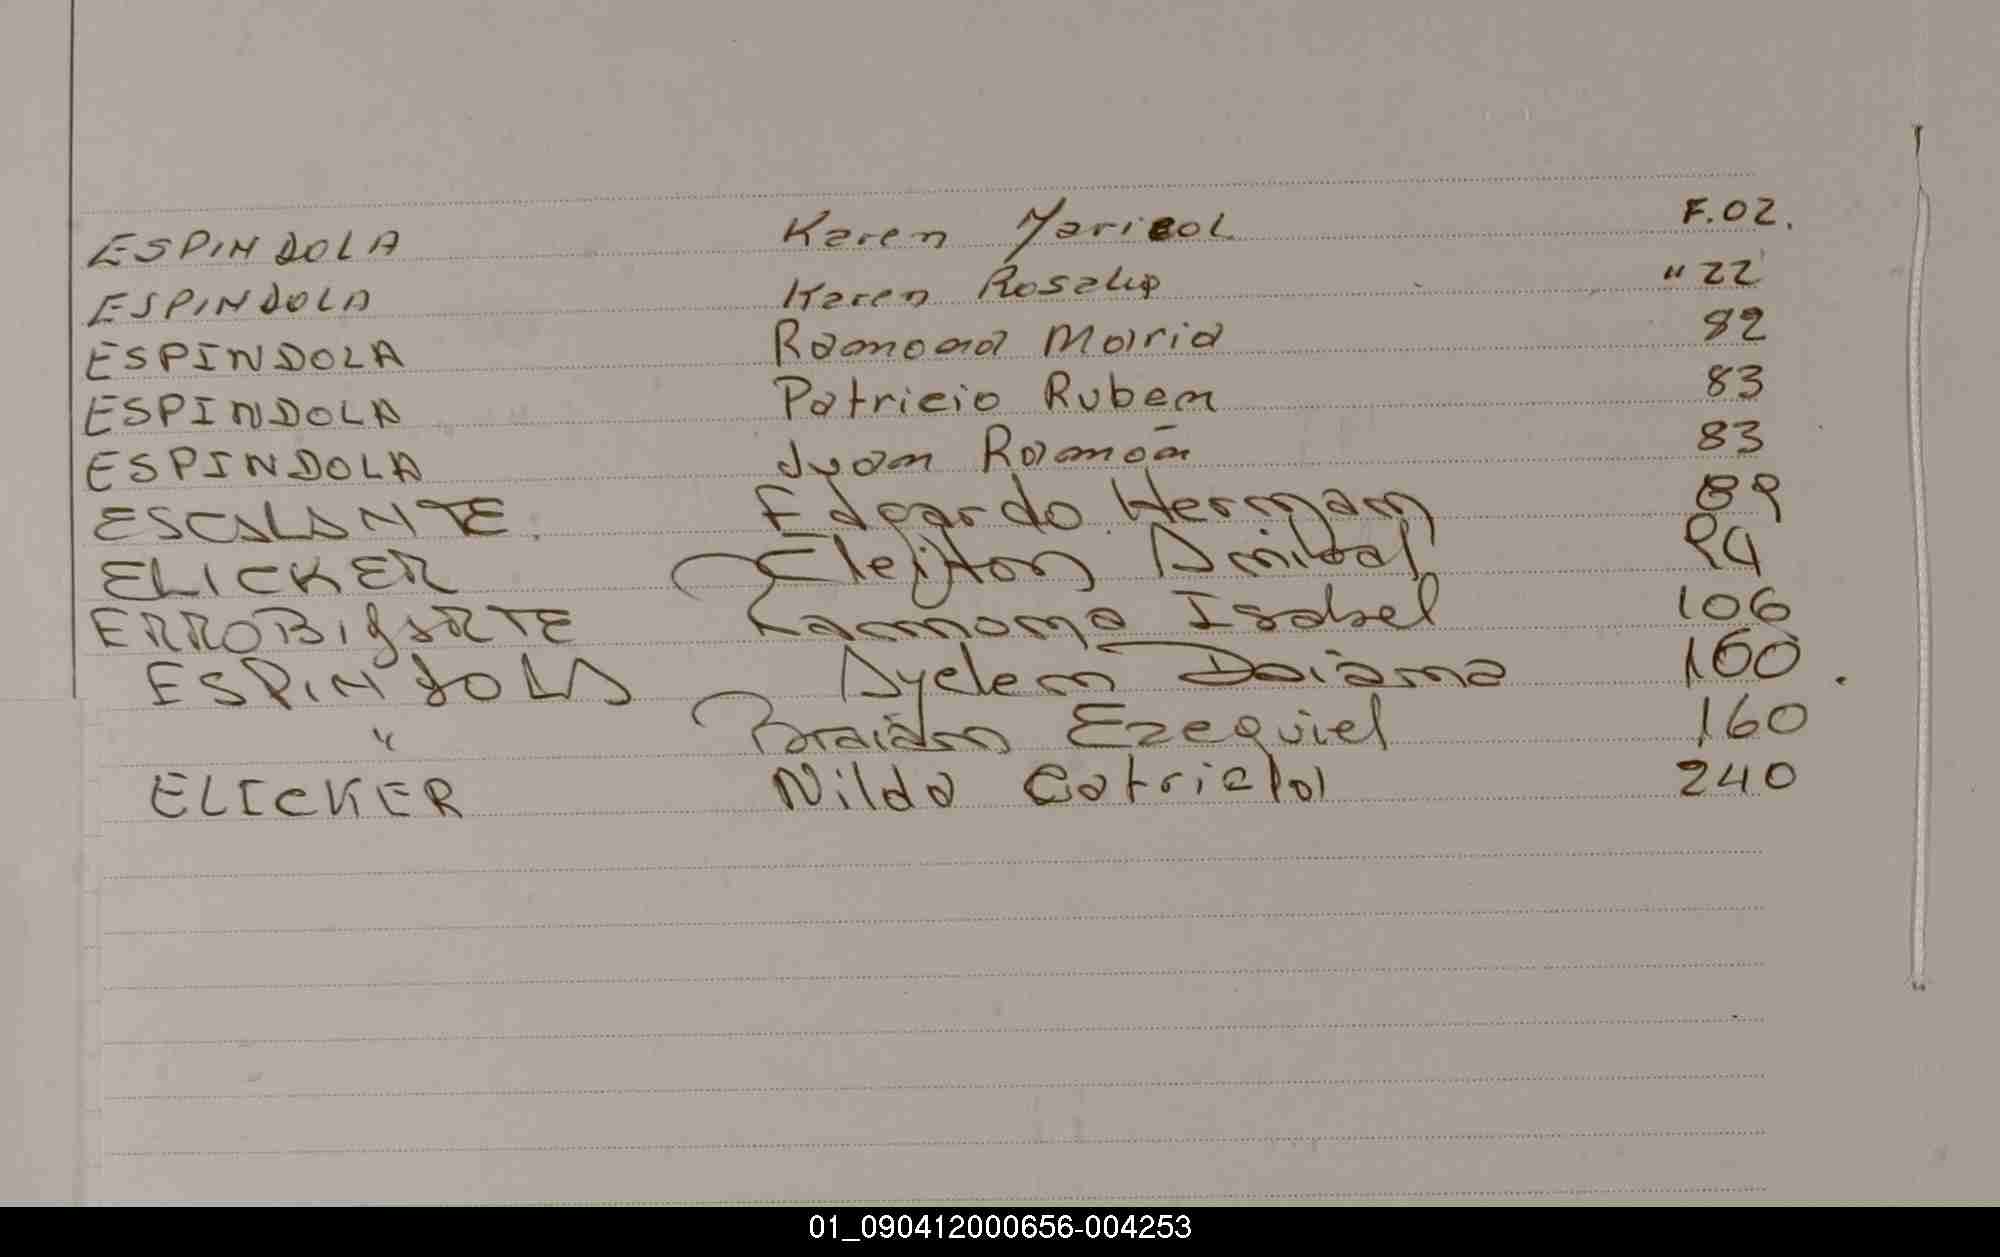 ESPINDOLA Karen Marisol F.02.
ESPINDOLA Karen Rosalia " 22
ESPINDOLA Ramona Maria 82
ESPINDOLA Patricio Ruben 83
ESPINDOLA Juan Ramón 83
ESCALANTE. Edgardo Hernan 89
ELICKER Cleiton Anibal 94
ERROBIGARTE Rammona Isabel 106
ESPINDOLA Ayelen Daiana 160.
" Braian Ezequiel 160
ELICKER Nilda Gatriela 240
01_090412000656-004253